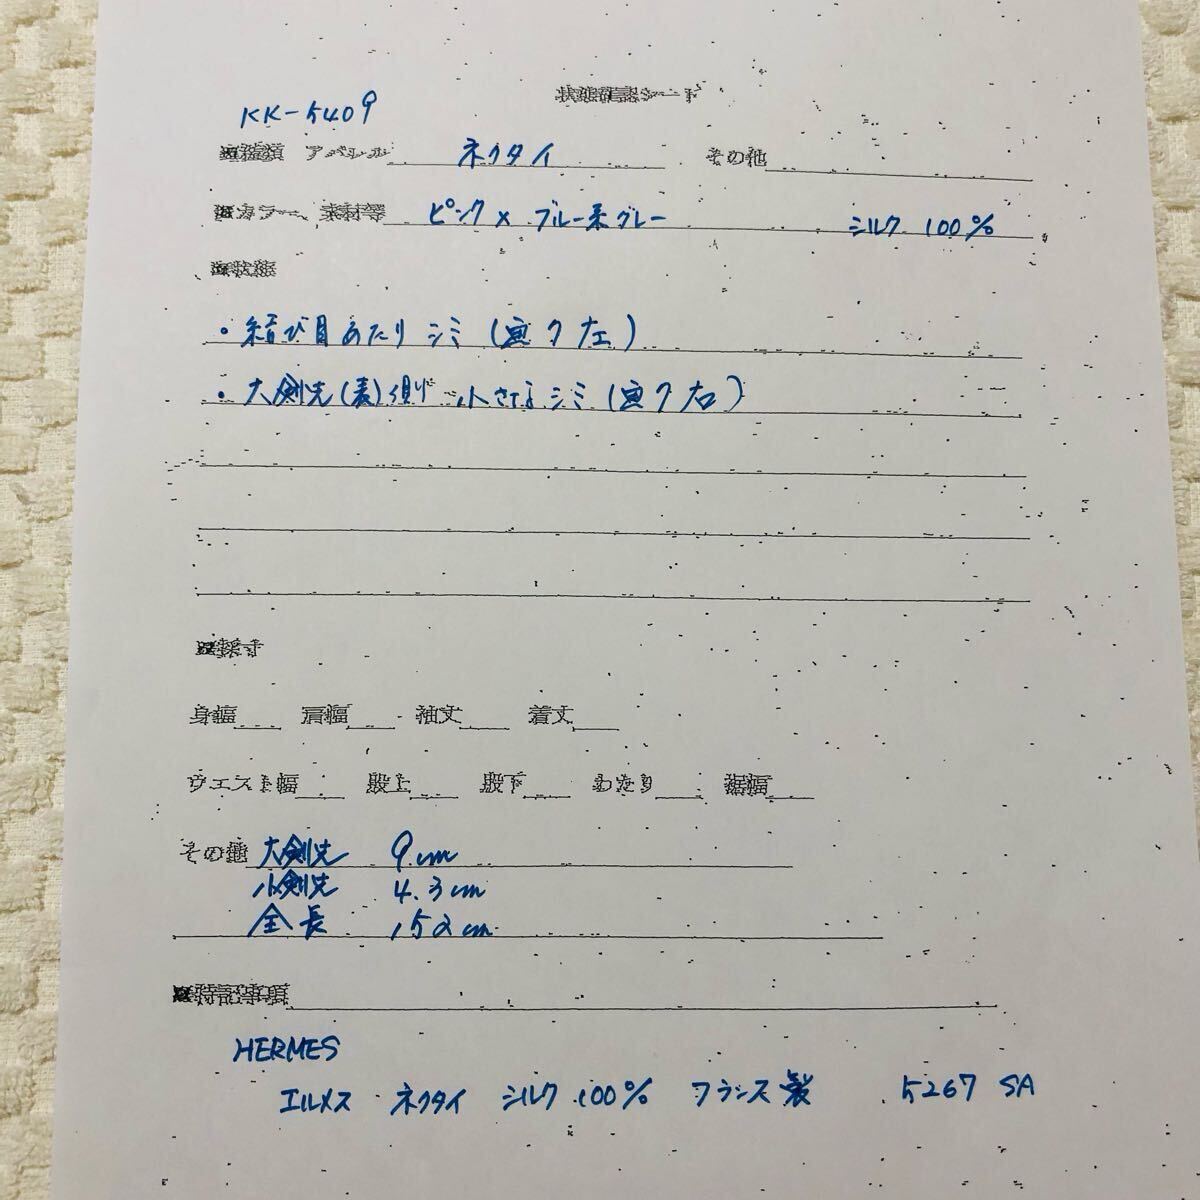 状態確認シート
KK-5409
■種類 アパレル ネクタイ その他
■カラー、素材等 ピンク×ブルー系グレー シルク 100%
■状態
・結び目あたりシミ(画7左)
・大剣先(表)側 小さなシミ(画7右)
■採寸
身幅 肩幅 袖丈 着丈
ウエスト幅 股上 股下 わたり 裾幅
その他 大剣先 9cm
小剣先 4.3cm
全長 152cm
■特記事項
HERMES
エルメス ネクタイ シルク 100% フランス製 5267 SA